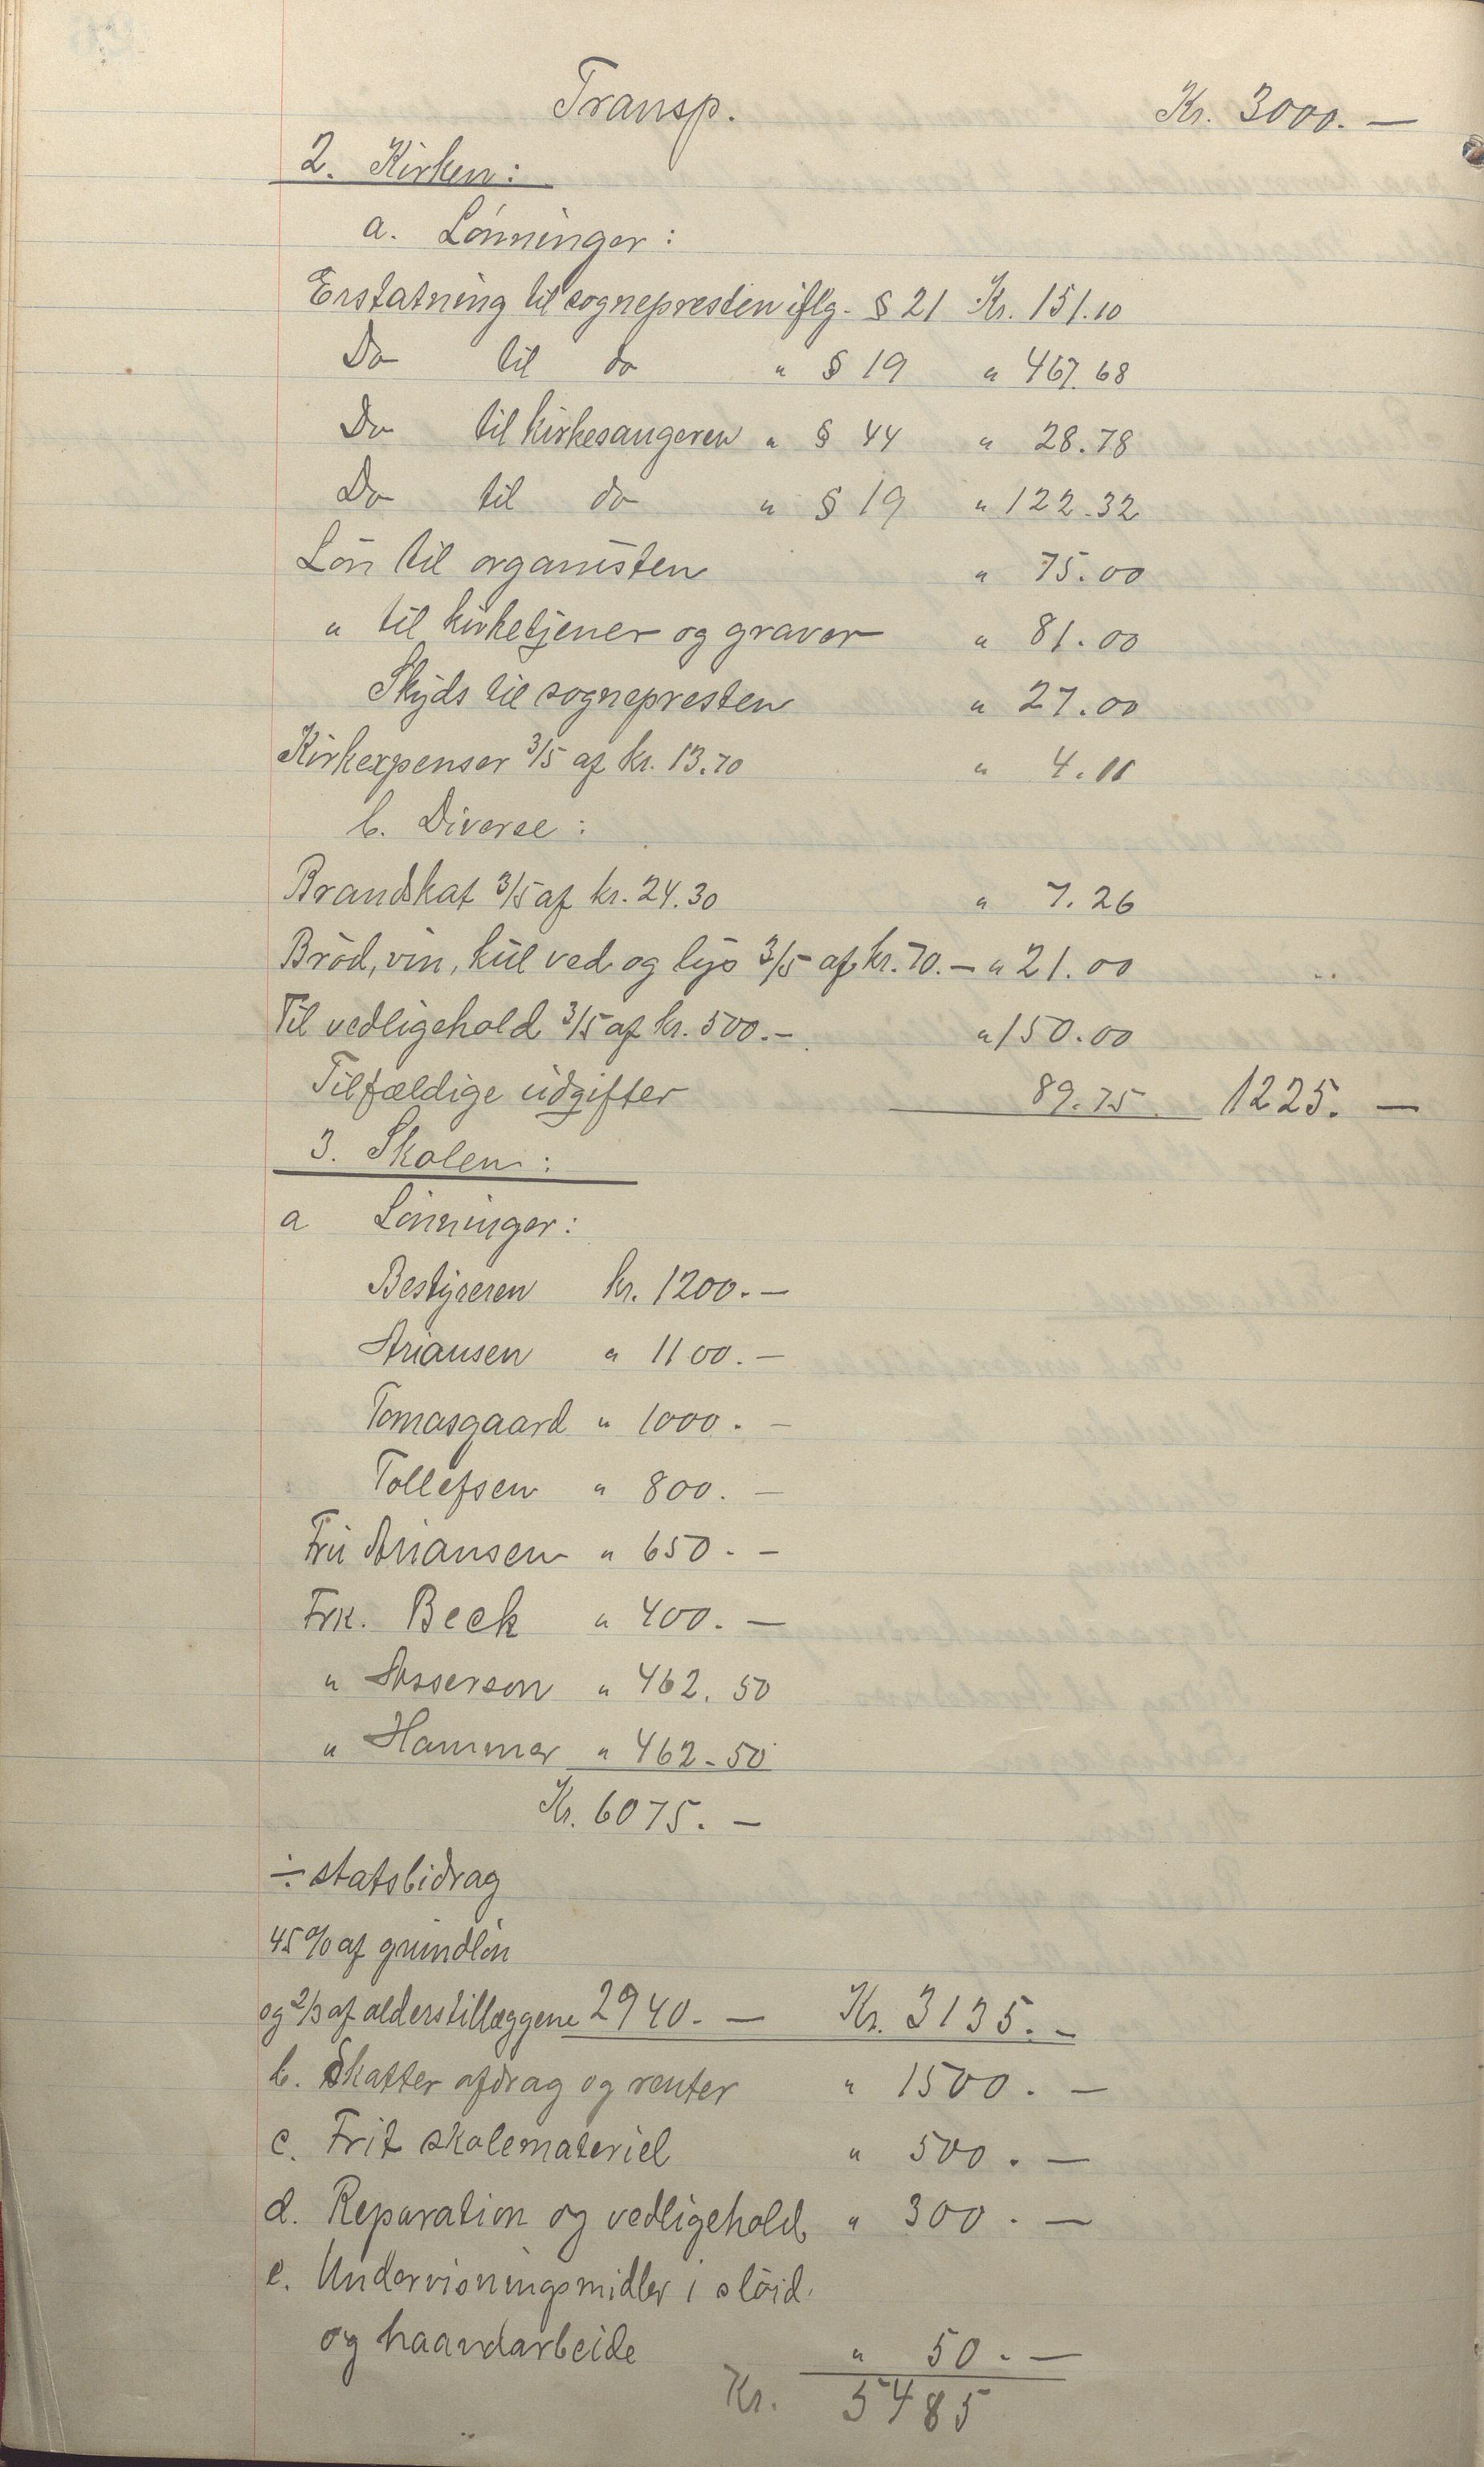 Transp. Kr. 3000. —
2. Kirken:
a. Lönninger:
Erstatning til sognepresten iflg. § 21 Kr. 151.10
Do til do " § 19 " 467.68
Do til kirkesangeren " § 44 " 28.78
Do til do " § 19 " 122.32
Lön til organisten " 75.00
" til kirketjener og graver " 81.00
Skyds til sognepresten " 27.00
Kirkexpenser 3/5 af kr. 13.70 " 4.11
b. Diverse:
Brandskat 3/5 af kr. 24.30 " 7.26
Bröd, vin, kul ved og lys 3/5 af kr. 70. — " 21.00
Til vedligehold 3/5 af kr. 500. — " 150.00
Tilfældige udgifter 89.75 1225. —
3. Skolen:
a Lönninger:
Bestyreren kr. 1200. —
Ariansen " 1100. —
Tomasgaard " 1000. —
Tollefsen " 800. —
Fru Ariansen " 650. —
Frk. Beck " 400. —
" Asserson " 462.50
" Hammer " 462.50
Kr. 6075. —
÷ statsbidrag
45 % af grundlön
og 2/3 af alderstillæggene 2940. — Kr. 3135. —
b. Skatter afdrag og renter " 1500. —
c. Frit skolemateriel " 500. —
d. Reparation og vedligehold " 300. —
e. Undervisningsmidler i slöid
og haandarbeide " 50. —
Kr. 5485